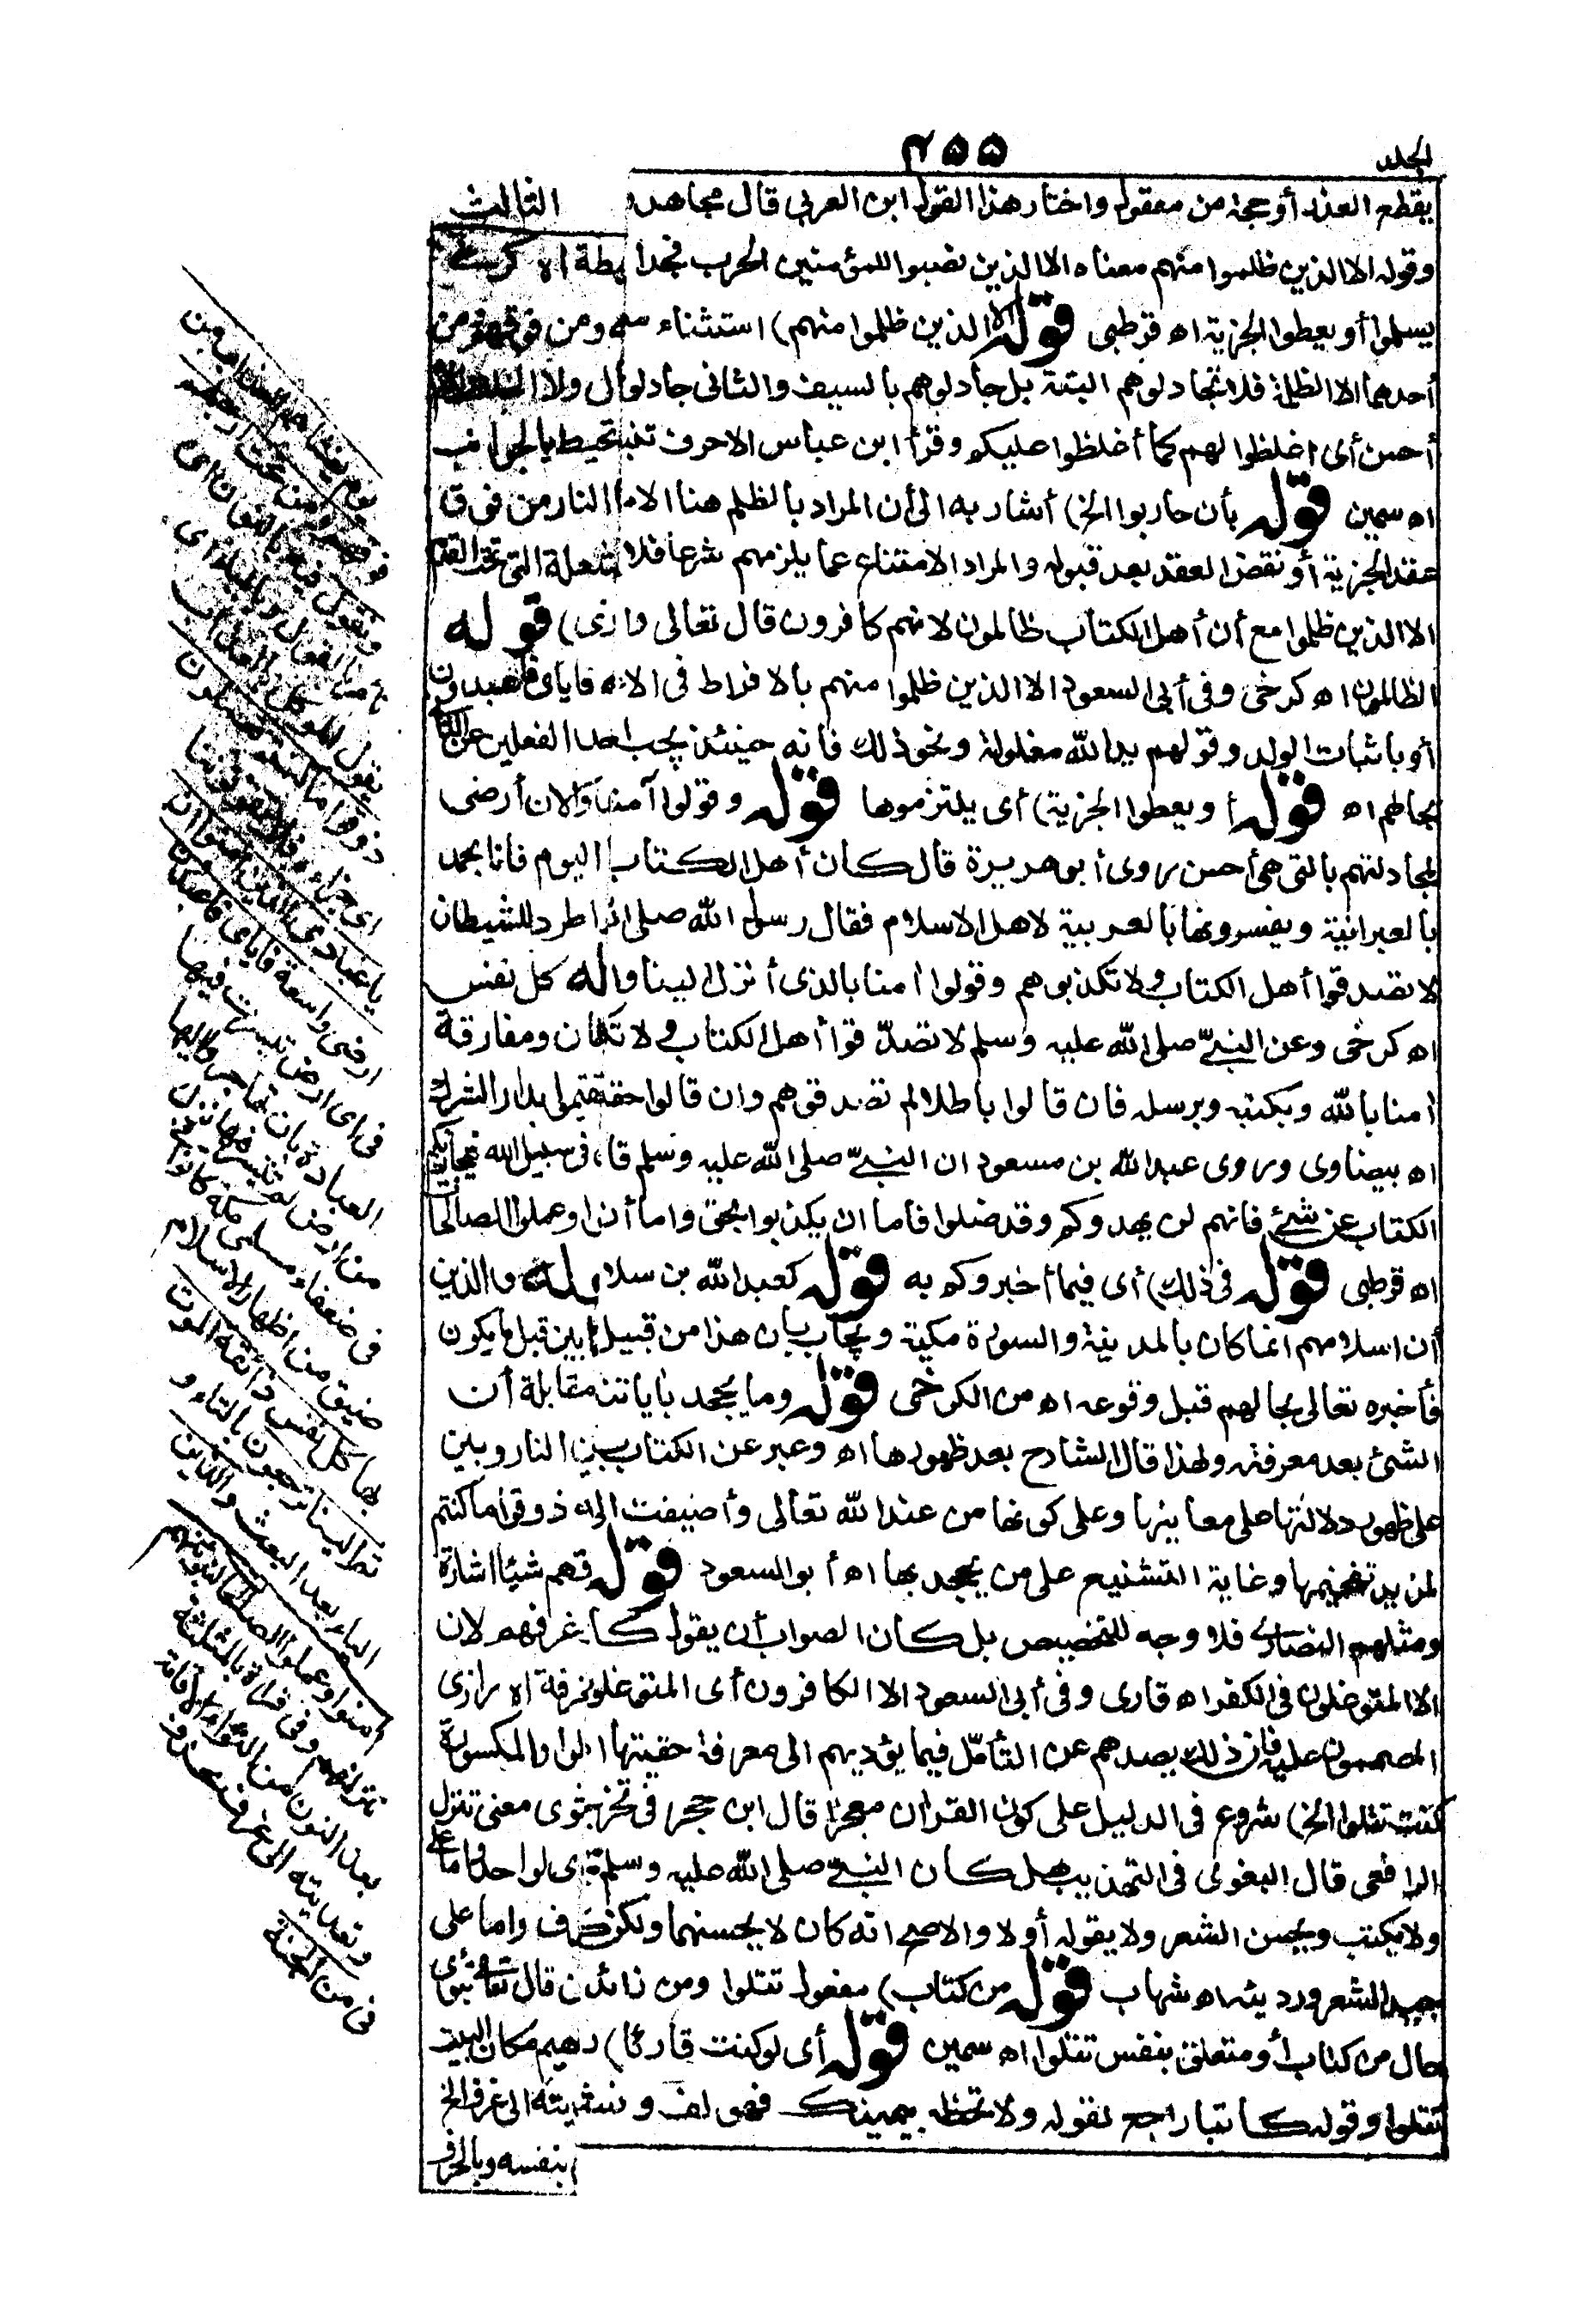 ٤٥٥
الجلد
الثالث
يقطع العذر أو حجة من معقول واختار هذا القول ابن العربي قال مجاهد
وقوله الا الذين ظلموا منهم معناه الا الذين نصبوا للمؤمنين الحرب فجدا يطة اه كرخي
يسلموا أو يعطوا الجزية اه قرطبي قوله الا الذين ظلموا منهم) استثناء ومن فوقهم ومن
أحدهما الا الظلمة فلا تجادلوهم البتة بل جادلوهم بالسيف والثاني جادلو ال ولا
أحسن أى اغلظوا لهم كما أغلظوا عليكم وقرأ ابن عباس الا حرف تنب تحيط بالجوانب
اه سمين قوله بأن حاربوا الخ) أشار به الى أن المراد بالظلم هنا الام النار من فوق
عقد الجزية أو نقض العقد بعد قبوله والمراد الامتناع عما يلزمهم شرعا فلا شعلة التى تحت القدم
الا الذين ظلموا مع أن أهل الكتاب ظالمون لانهم كافرون قال تعالى رازى) قوله
الظالمون اه كرخى وفى أبى السعود الا الذين ظلموا منهم بالافراط فى الا فاياى فاعبدون
أو باثبات الولد وقولهم يد الله مغلولة ونحو ذلك فانه حينئذ يجب احد الفعلين عن
بحالهم اه قوله أو يعطوا الجزية) أى يلتزموها قوله وقولوا آمنا الان أرضى
لمجادلتهم بالتى هى أحسن روى أبو هريرة قال كان أهل الكتاب اليوم فانا بحمد
بالعبرانية ويفسرونها بالعربية لاهل الاسلام فقال رسول الله صلى ا اطرد للشيطان
لا تصدقوا أهل الكتاب ولا تكذبوهم وقولوا امنا بالذى أنزل الينا وا له كل نفس
اه كرخى وعن النبى صلى الله عليه وسلم لا تصدقوا أهل الكتاب ولا تك ان ومفارقة
امنا بالله وبكتبه وبرسله فان قالوا باطلا لم تصدقوهم وان قالوا حقا بدار الشرك
اه بيضاوى وروى عبد الله بن مسعود ان النبى صلى الله عليه وسلم قا فى سبيل الله
الكتاب عن شئ فانهم لن يهدوكم وقد ضلوا فاما ان يكذبوا بحق واما أن ا وعملوا الصالحا
اه قرطبى قوله فى ذلك) أى فيما أخبروكم به قوله كعبد الله بن سلا له والذين
أن اسلامهم انما كان بالمدينة والسورة مكية ويجاب بان هذا من قبيل ا يكون
فأخبره تعالى بحالهم قبل وقوعه اه من الكرخى قوله وما يجحد باياتنا مقابلة أن
الشئ بعد معرفته ولهذا قال الشارح بعد ظهورها اه وعبر عن الكتاب بين النار وبين
على ظهور دلالتها على معانيها وعلى كونها من عند الله تعالى وأضيفت ا ذوقوا ما كنتم
لمزيد تفخيمها وغاية التشنيع على من يجحد بها اه أبو السعود قوله قهم شيئا اشارة
ومثلهم النصارى فلا وجه للتخصيص بل كان الصواب أن يقول كا غرفهم لان
الا المتوغلون فى الكفر اه قارى وفى أبى السعود الا الكافرون أى المتوغلو غرفة اه رازى
المصممون عليه فان ذلك يصدهم عن التأمل فيما يؤديهم الى معرفة حقيتها ا الواو المكسورة
كنت تتلوا الخ) شروع فى الدليل على كون القران معجزا قال ابن حجر فى تخر معنى تنزل
الرافعى قال البغوى فى التهذيب هل كان النبى صلى الله عليه وسلم لواحد واما على
ولا يكتب ويحسن الشعر ولا يقوله أولا والاصح انه كان لا يحسنهما ولكن ف واما على
جيد الشعر ورديئه اه شهاب قوله من كتاب) مفعول تتلوا ومن زائدة قال تعالى
حال من كتاب أو متعلق بنفس تتلوا اه سمين قوله أى لو كنت قارئا) مكان البيت
تتلوا وقوله كاتبا راجع لقوله ولا تخطه بيمينك فهو لف ونشر يته الى غرف الخ
بنفسه وبالحرف
ونقول فيه بالنون اى
يا عبادى الذين امنوا ان
ارضى واسعة فاياى فاعبدون
فى اى ارض تيسرت فيها
العبادة بان تهاجروا اليها
من ارض لم تتيسر فيها نزل
فى ضعفاء مسلمى مكة كانوا
ضيق من اظهار الاسلام
بها كل نفس ذائقة الموت
ثم الينا ترجعون بالتاء و
الياء بعد البعث والذين
امنوا وعملوا الصالحات لنبوئنهم
ننزلنهم وفى قراءة بالمثلثة
بعد النون من الثواء الاقامة
وتعديته الى غرف بحذف
فى من الجنة